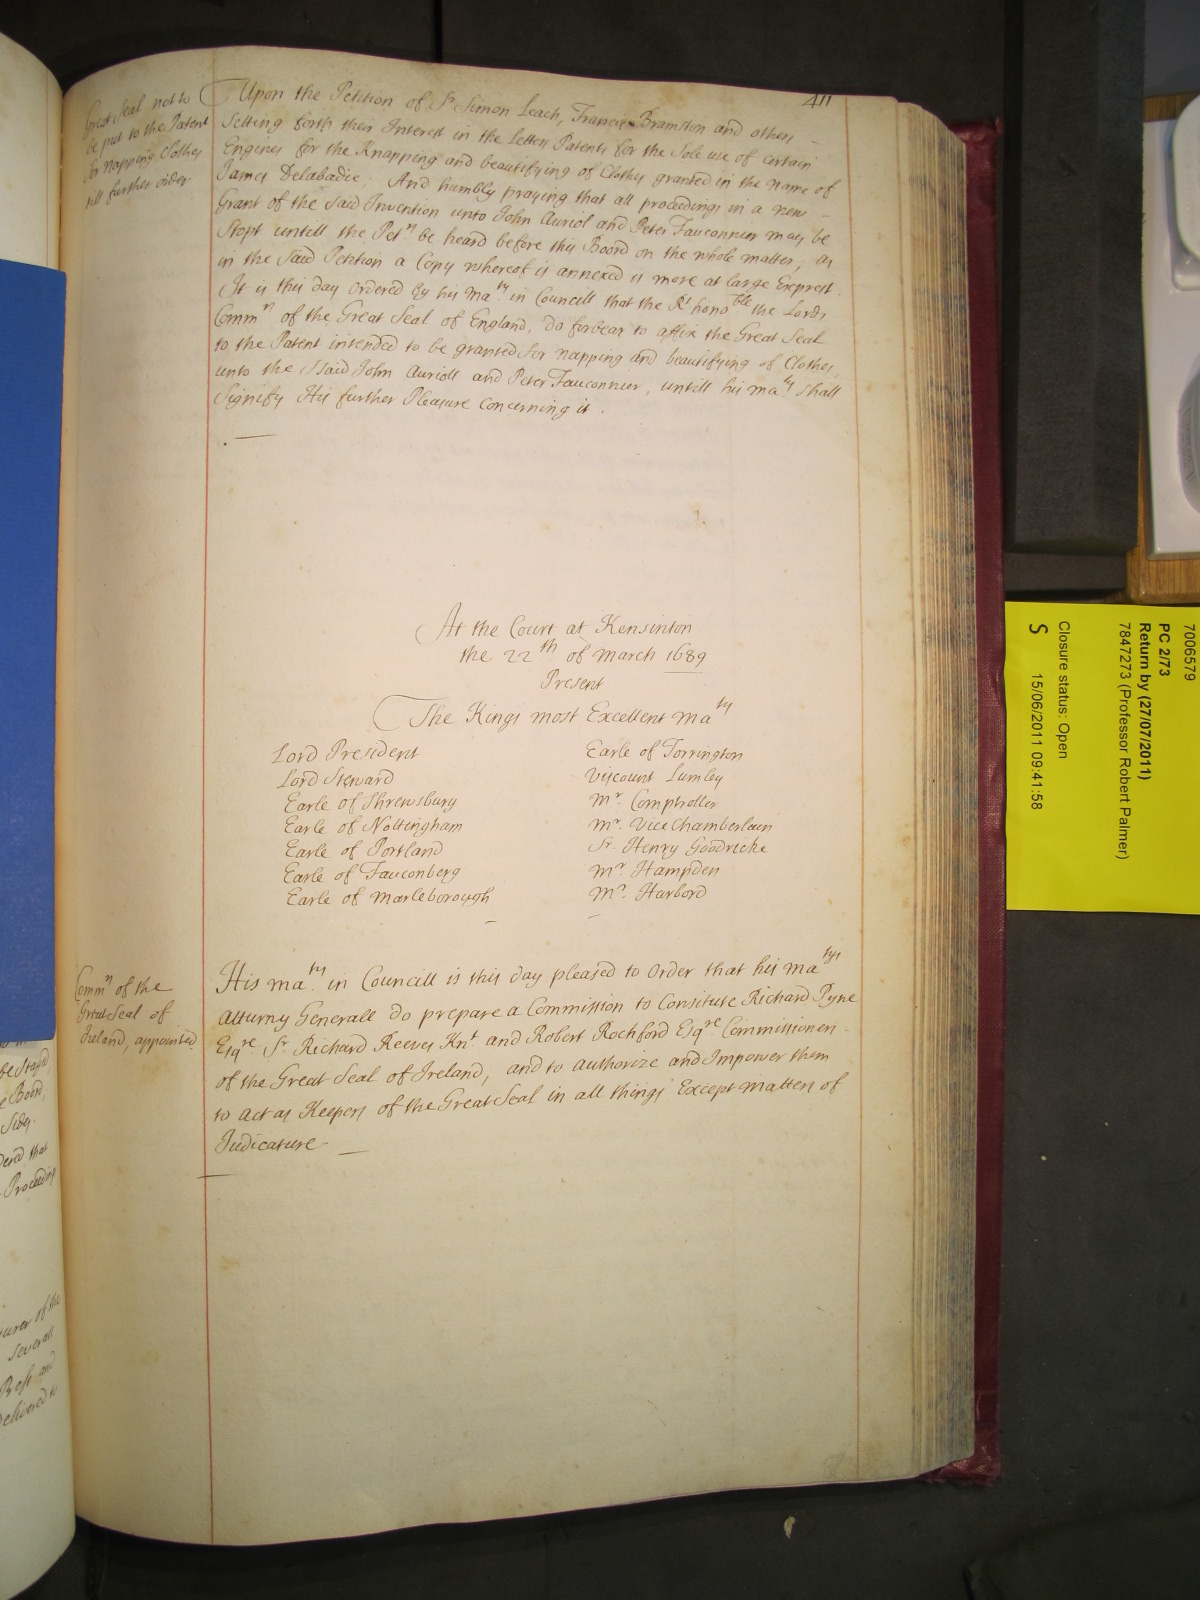 411
Great Seal not to
be put to the Patent
for Napping Clothes
till further order
Upon the Petition of Sr Simon Leach, Francis Bramston and others -
Setting forth their Interest in the Letters Patents for the Sole use of certain
Engines for the Knapping and beautifying of Clothes granted in the name of
James Delabadie; And humbly praying that all proceedings in a new -
Grant of the said Invention unto John Auriol and Peter Fauconnier may be
Stopt untill the Petrs be heard before this Board on the whole matter, as
in the said Petition a Copy whereof is annexed is more at large Exprest.
It is this day Ordered by his Maty in Councill that the Rt honoble the Lords
Commrs of the Great Seal of England, do forbear to affix the Great Seal
to the Patent intended to be granted for napping and beautifying of Clothes,
unto the sSaid John Aurioll and Peter Fauconnier, untill his Maty Shall
Signify His further Pleasure Concerning it.
At the Court at Kensinton
the 22th of March 1689
Present
The Kings most Excellent Maty
Lord President
Lord Steward
Earle of Shrewsbury
Earle of Nottingham
Earle of Portland
Earle of Fauconberg
Earle of Marleborough
Earle of Torrington
Viscount Lumley
Mr. Comptroller
Mr. Vice Chamberlain
Sr. Henry Goodricke
Mr. Hampden
Mr. Harbord
Commrs of the
Great Seal of
Ireland, appointed
His Maty. in Councill is this day pleased to Order that his Matys
Atturny Generall do prepare a Commission to Consitute Richard Pyne
Esqre. Sr. Richard Reeves Knt. and Robert Rochford Esqre Commissioners -
of the Great Seal of Ireland, and to authorize and Impower them
to act as Keepers of the Great Seal in all things Except Matters of
Judicature. —
be Stay'd
e Board,
Sides.
dered that
Proceeding
urer of the
Severall
and
Delivered to
7006579
PC 2/73
Return by (27/07/2011)
7847273 (Professor Robert Palmer)
Closure status: Open
S 15/06/2011 09:41:58